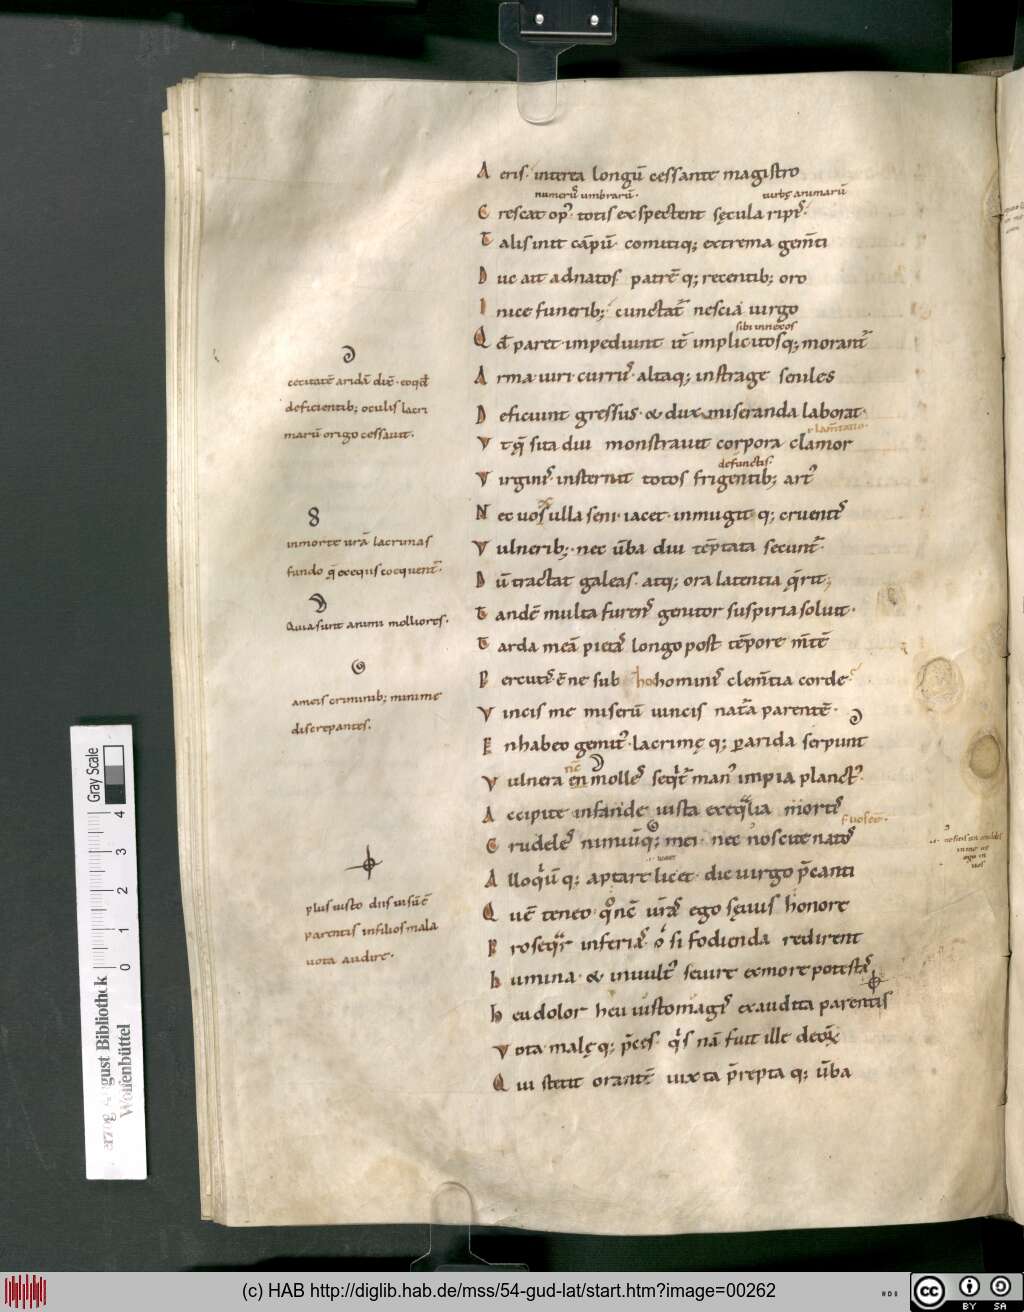 A eris. interea longū cessante magistro
numerū umbrarū. turbę animarū
C rescat op'. totis exspectent sęcula ripis.
T alis init cāpū. comitiq; extrema gem̄ti
D uc ait ad natos patrē q; recentib; oro
I nice funerib; cunctat' nescia uirgo
sibi innexos
Q d̄ paret. impediunt it̄ implicitosq; morant'
A rma uiri currus. altaq; in strage seniles
D eficiunt gressus. & dux miseranda laborat.
V tq̄ sita diu monstrauit corpora clamor
lam̄tatio.
defunctis.
V irginis insternit totos frigentib; art'
N ec uox ulla seni. iacet. inmugit q; cruentis
V ulnerib;. nec ūba diu tēptata secunt'.
D ū tractat galeas. atq; ora latentia q̄rit;
T andē multa furens genitor suspiria soluit.
T arda meā pietas longo post tēpore m̄tē
P ercutis ēne sub ho hominis clem̄tia corde
V incis me miserū uincis nata parentē.
E n habeo gemitus. lacrimę q; p arida serpunt
V ulnera en molles seqt' man' impia planct'.
A ccipite infande iusta exequia mortis
C rudeles nimiūq; mei. nec noscere natos
f uoscū.
A lloquiū q; aptare licet. dic uirgo p̄canti
Q uē teneo q°nc̄ ur̄as ego sęuus honore
P rosequar inferias. o si fodienda redirent
L umina. & in uultus seuire ex more potestas
H eu dolor heu iusto magis exaudita parentis
V ota malę q; p̄ces qis nā fuit ille deox
Q ui stetit orantē iuxta p̄repta q; ūba
cecitatē aridā dic̄. eo qd̄
deficientib; oculis lacri
marū origo cessauit.
8
in morte ur̄a lacrimas
fundo q̄ exequiis coequent'.
Quia sunt animi molliores.
a meis criminib; minime
discrepantes.
plus iusto diis uisū ē
parentis in filios mala
uota audire.
Gray Scale
0 1 2 3 4
Herzog August Bibliothek
Wolfenbüttel
(c) HAB http://diglib.hab.de/mss/54-gud-lat/start.htm?image=00262
cc BY SA